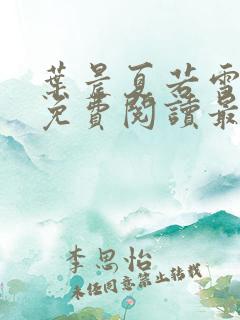 葉晨夏若雪
免費閱讀最
李思怡
未經同意禁止转载